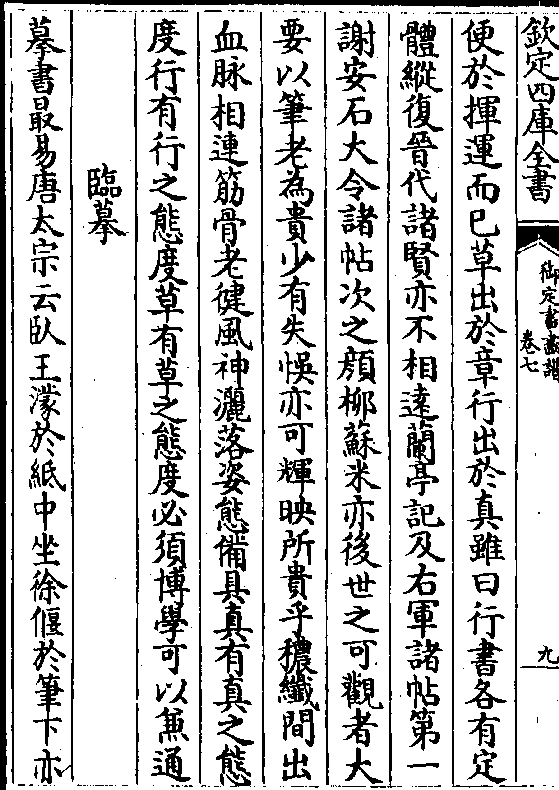 欽定四庫全書
御定書畫譜
卷七
九
便於揮運而已草出於章行出於真雖曰行書各有定
體縱復晉代諸賢亦不相遠蘭亭記及右軍諸帖第一
謝安石大令諸帖次之顔栁蘇米亦後世之可觀者大
要以筆老為貴少有失悞亦可輝映所貴乎穠纖間出
血脉相連筋骨老健風神灑落姿態備具真有真之態
度行有行之態度草有草之態度必須博學可以兼通
臨摹
摹書最易唐太宗云臥王濛於紙中坐徐偃於筆下亦